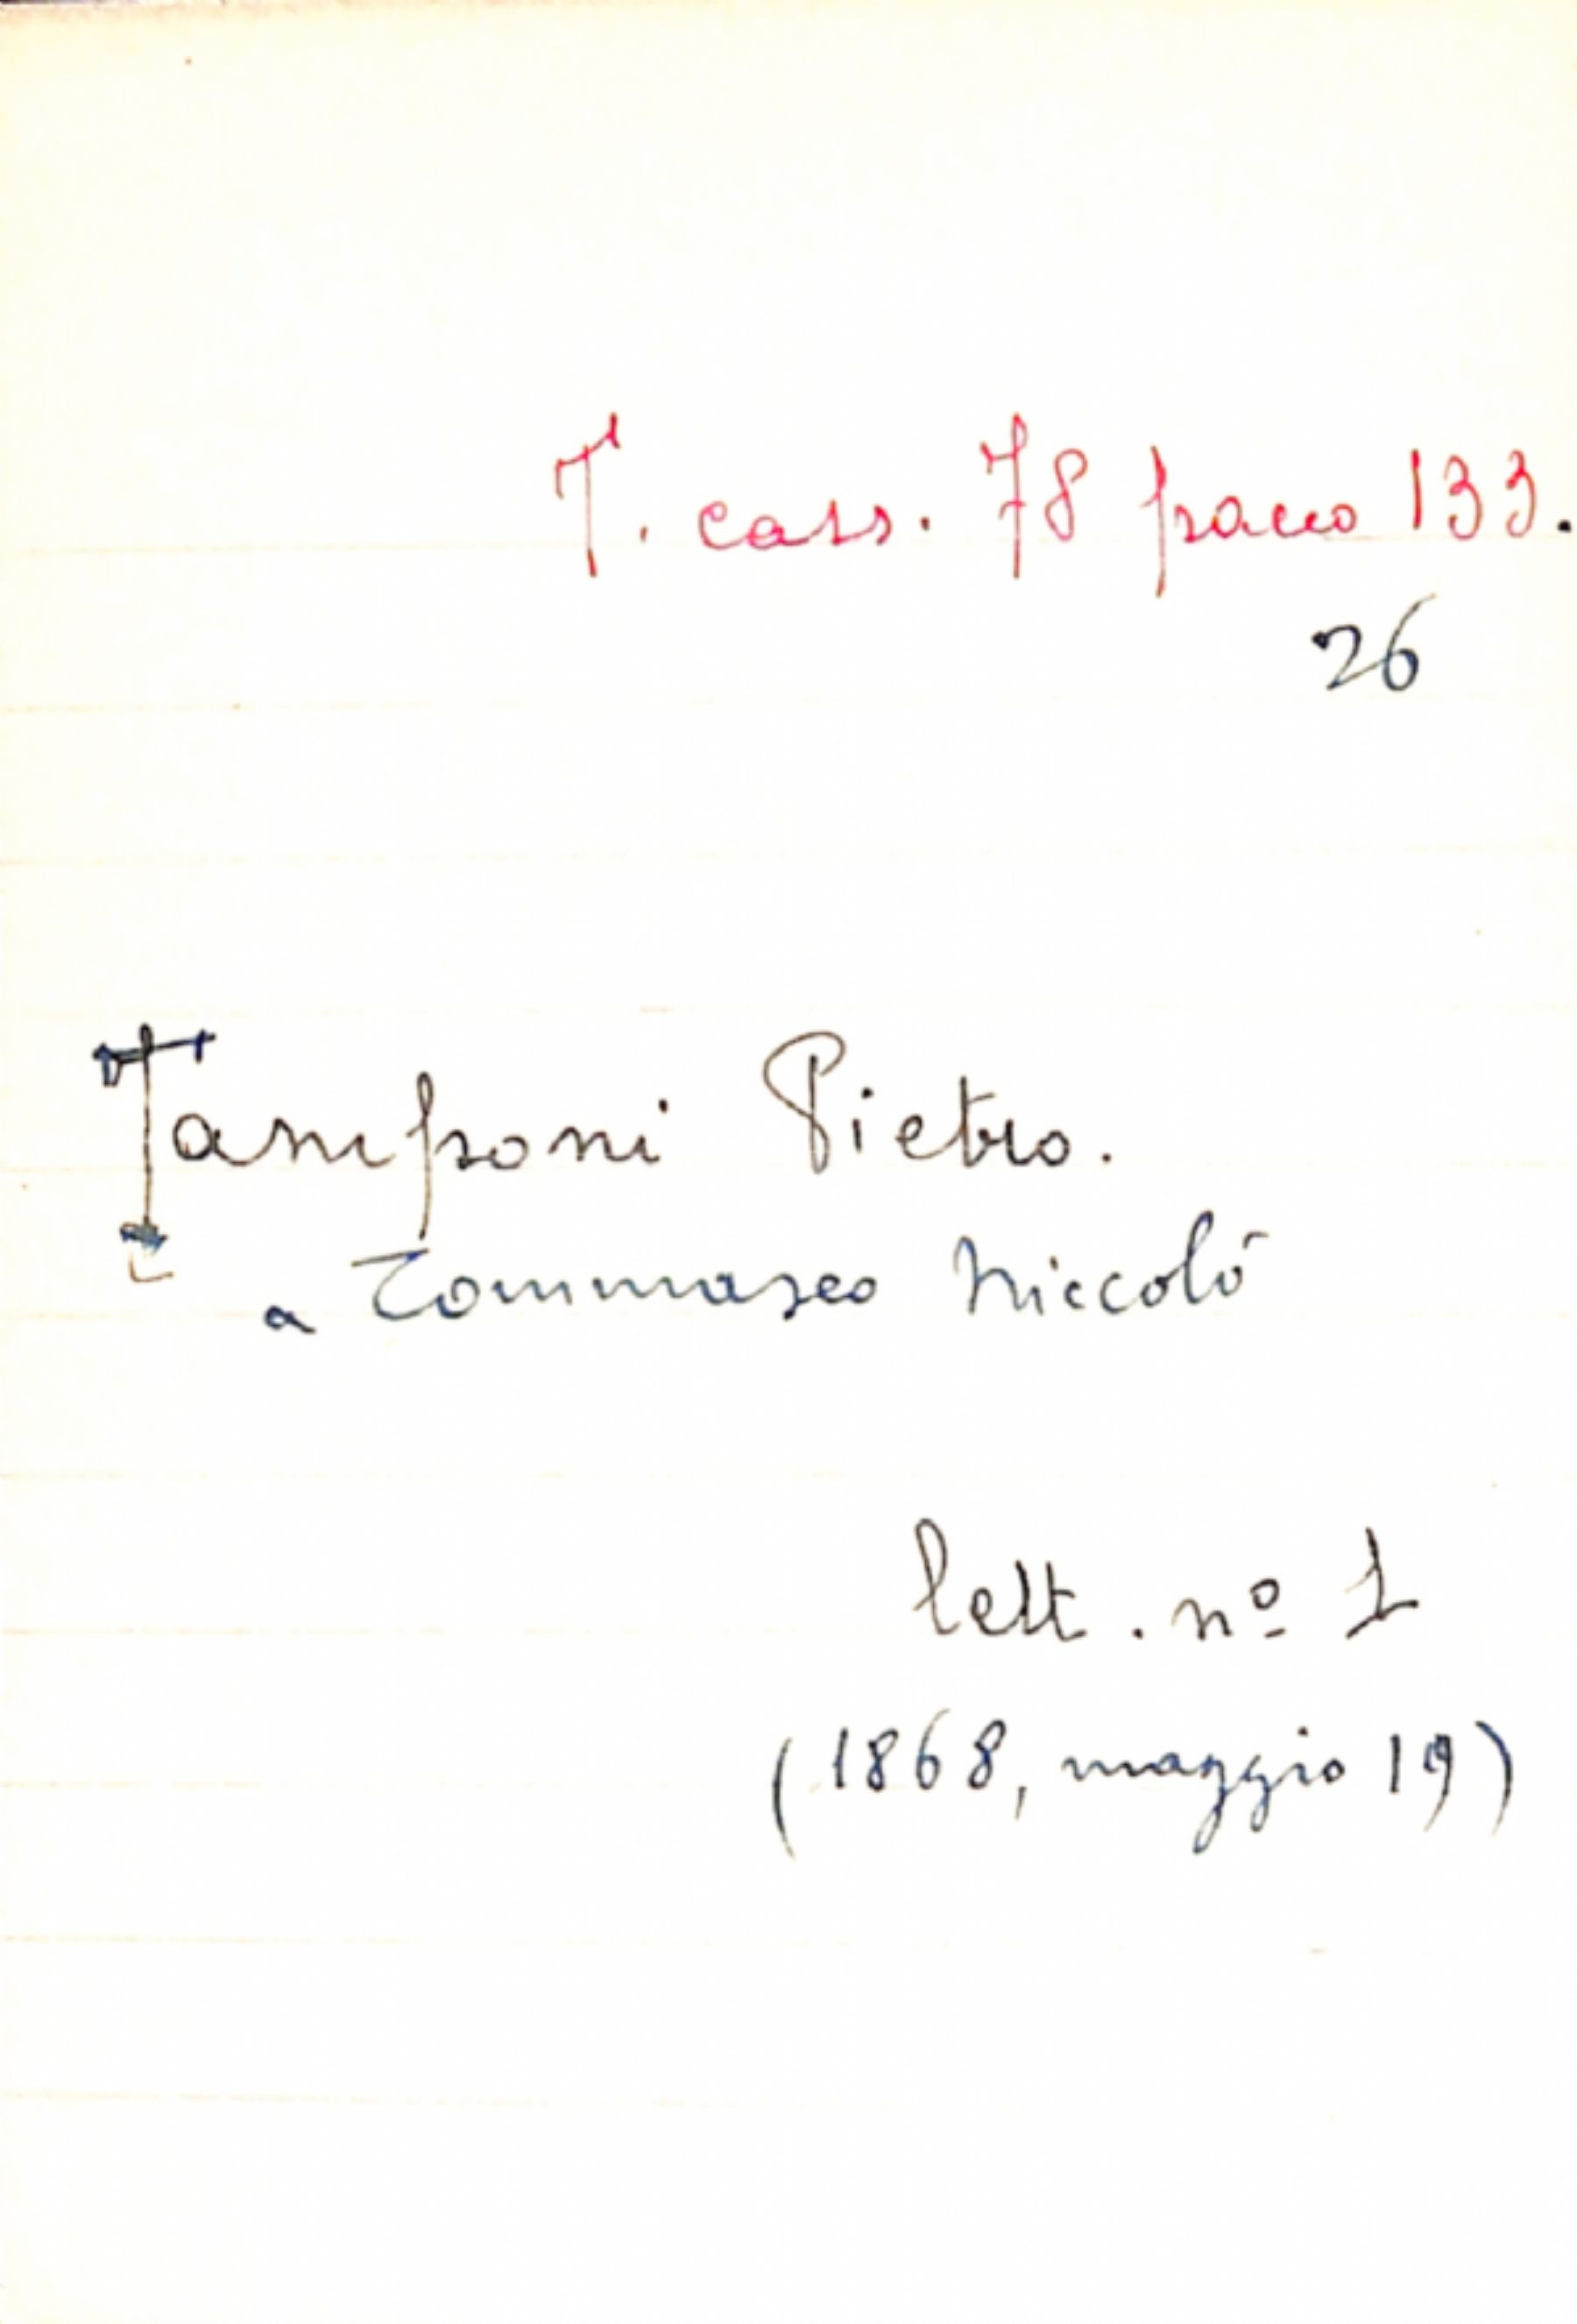 T. cass. 78 pacco 133.
26
Tamponi Pietro.
a Tommaseo Niccolò
lett. nº 1
(1868, maggio 19)